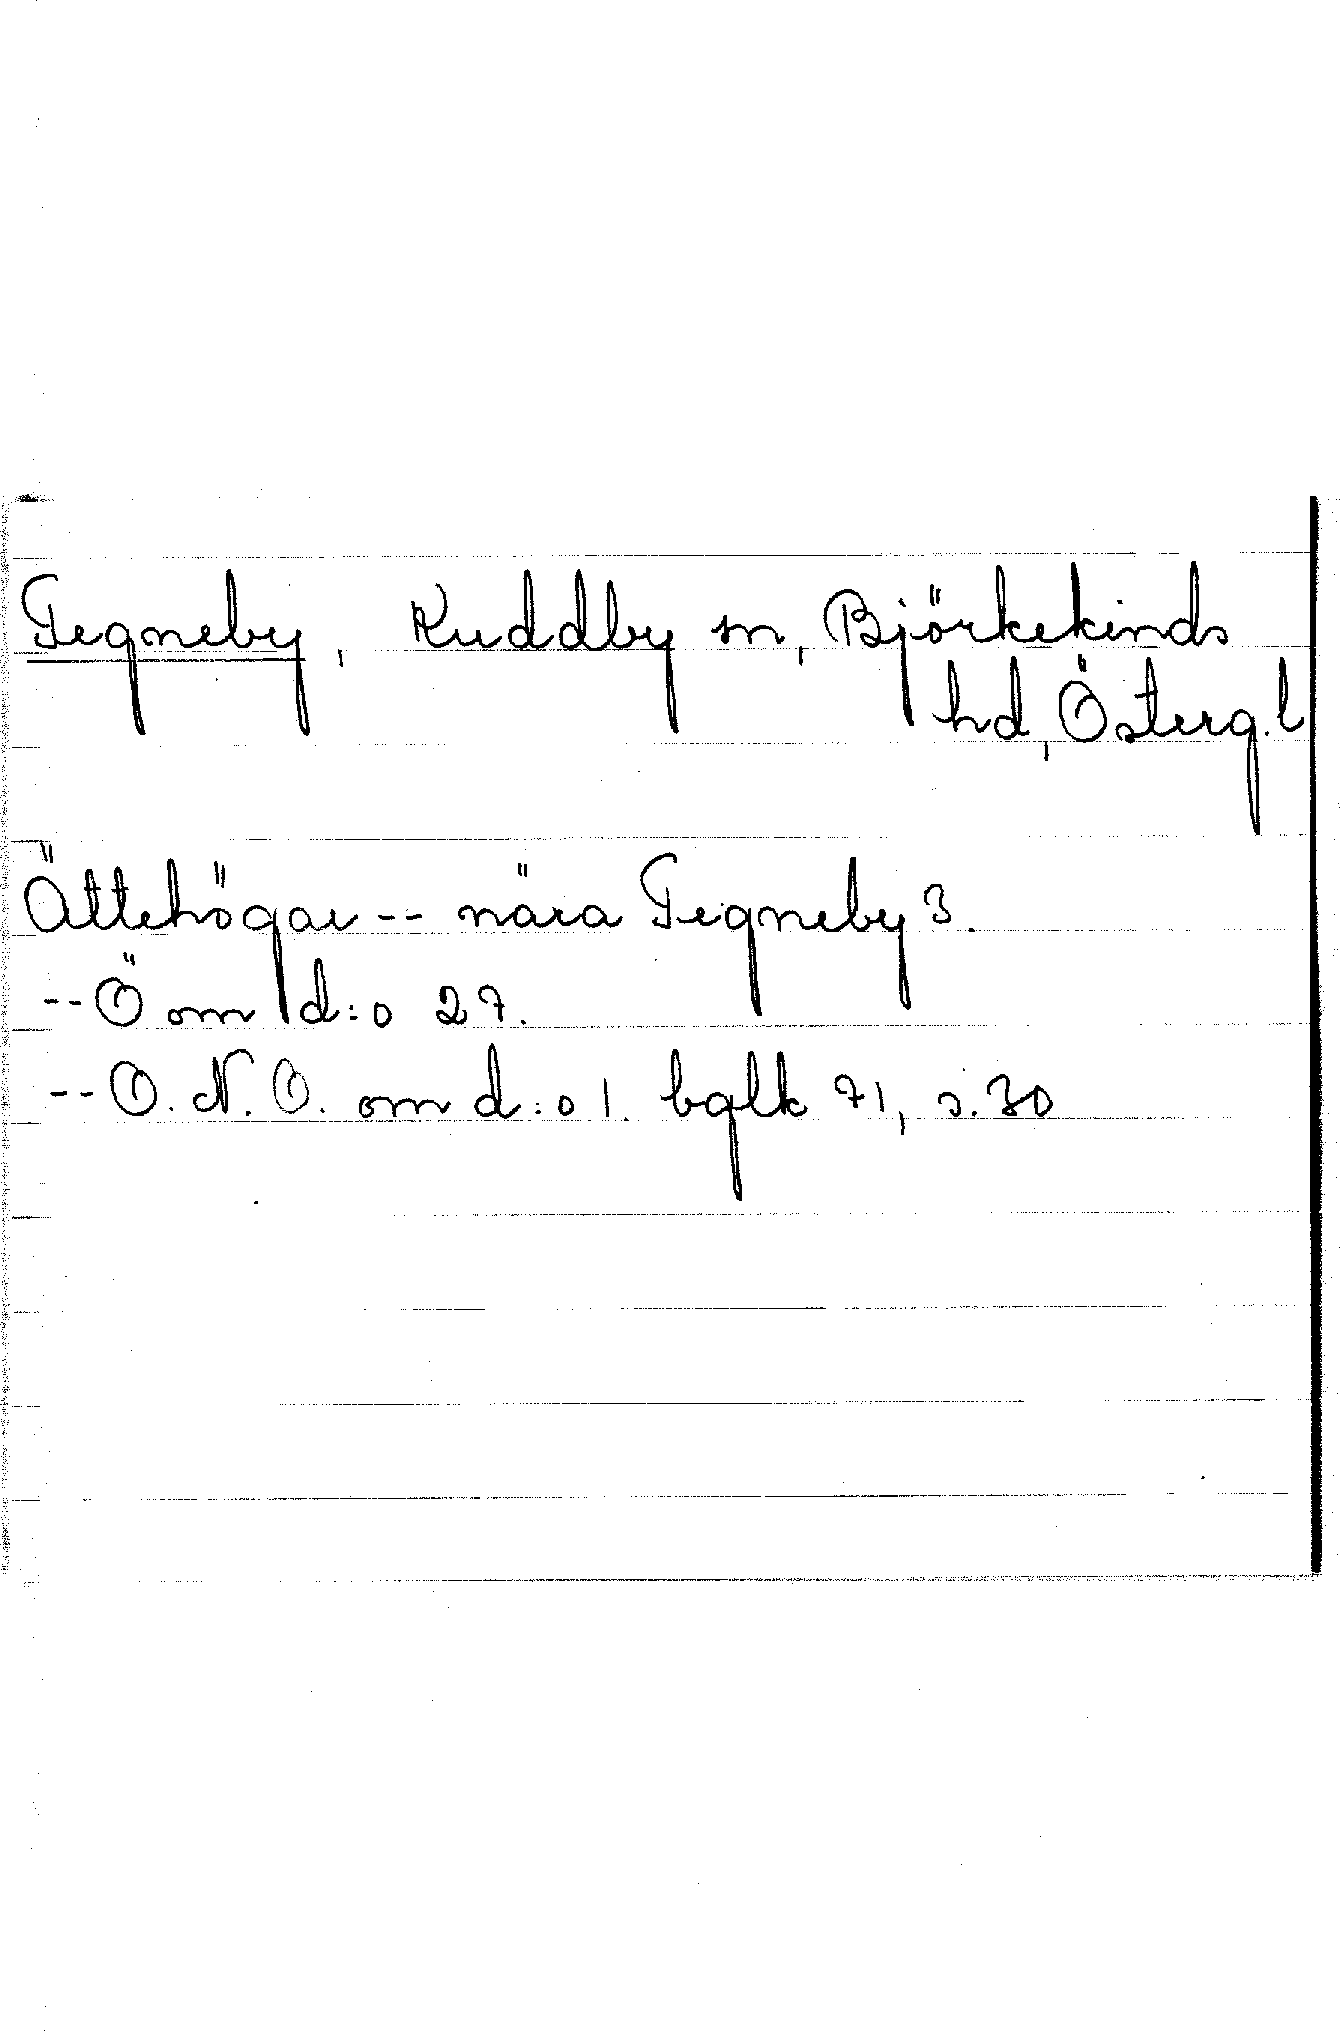 Tegneby, Kuddby sn, Björkekinds
hd, Österg.l
Ättehögar -- nära Tegneby 3.
-- Ö om d:o 27.
-- O.N.O. om d:o 1. bglk 71, s.30